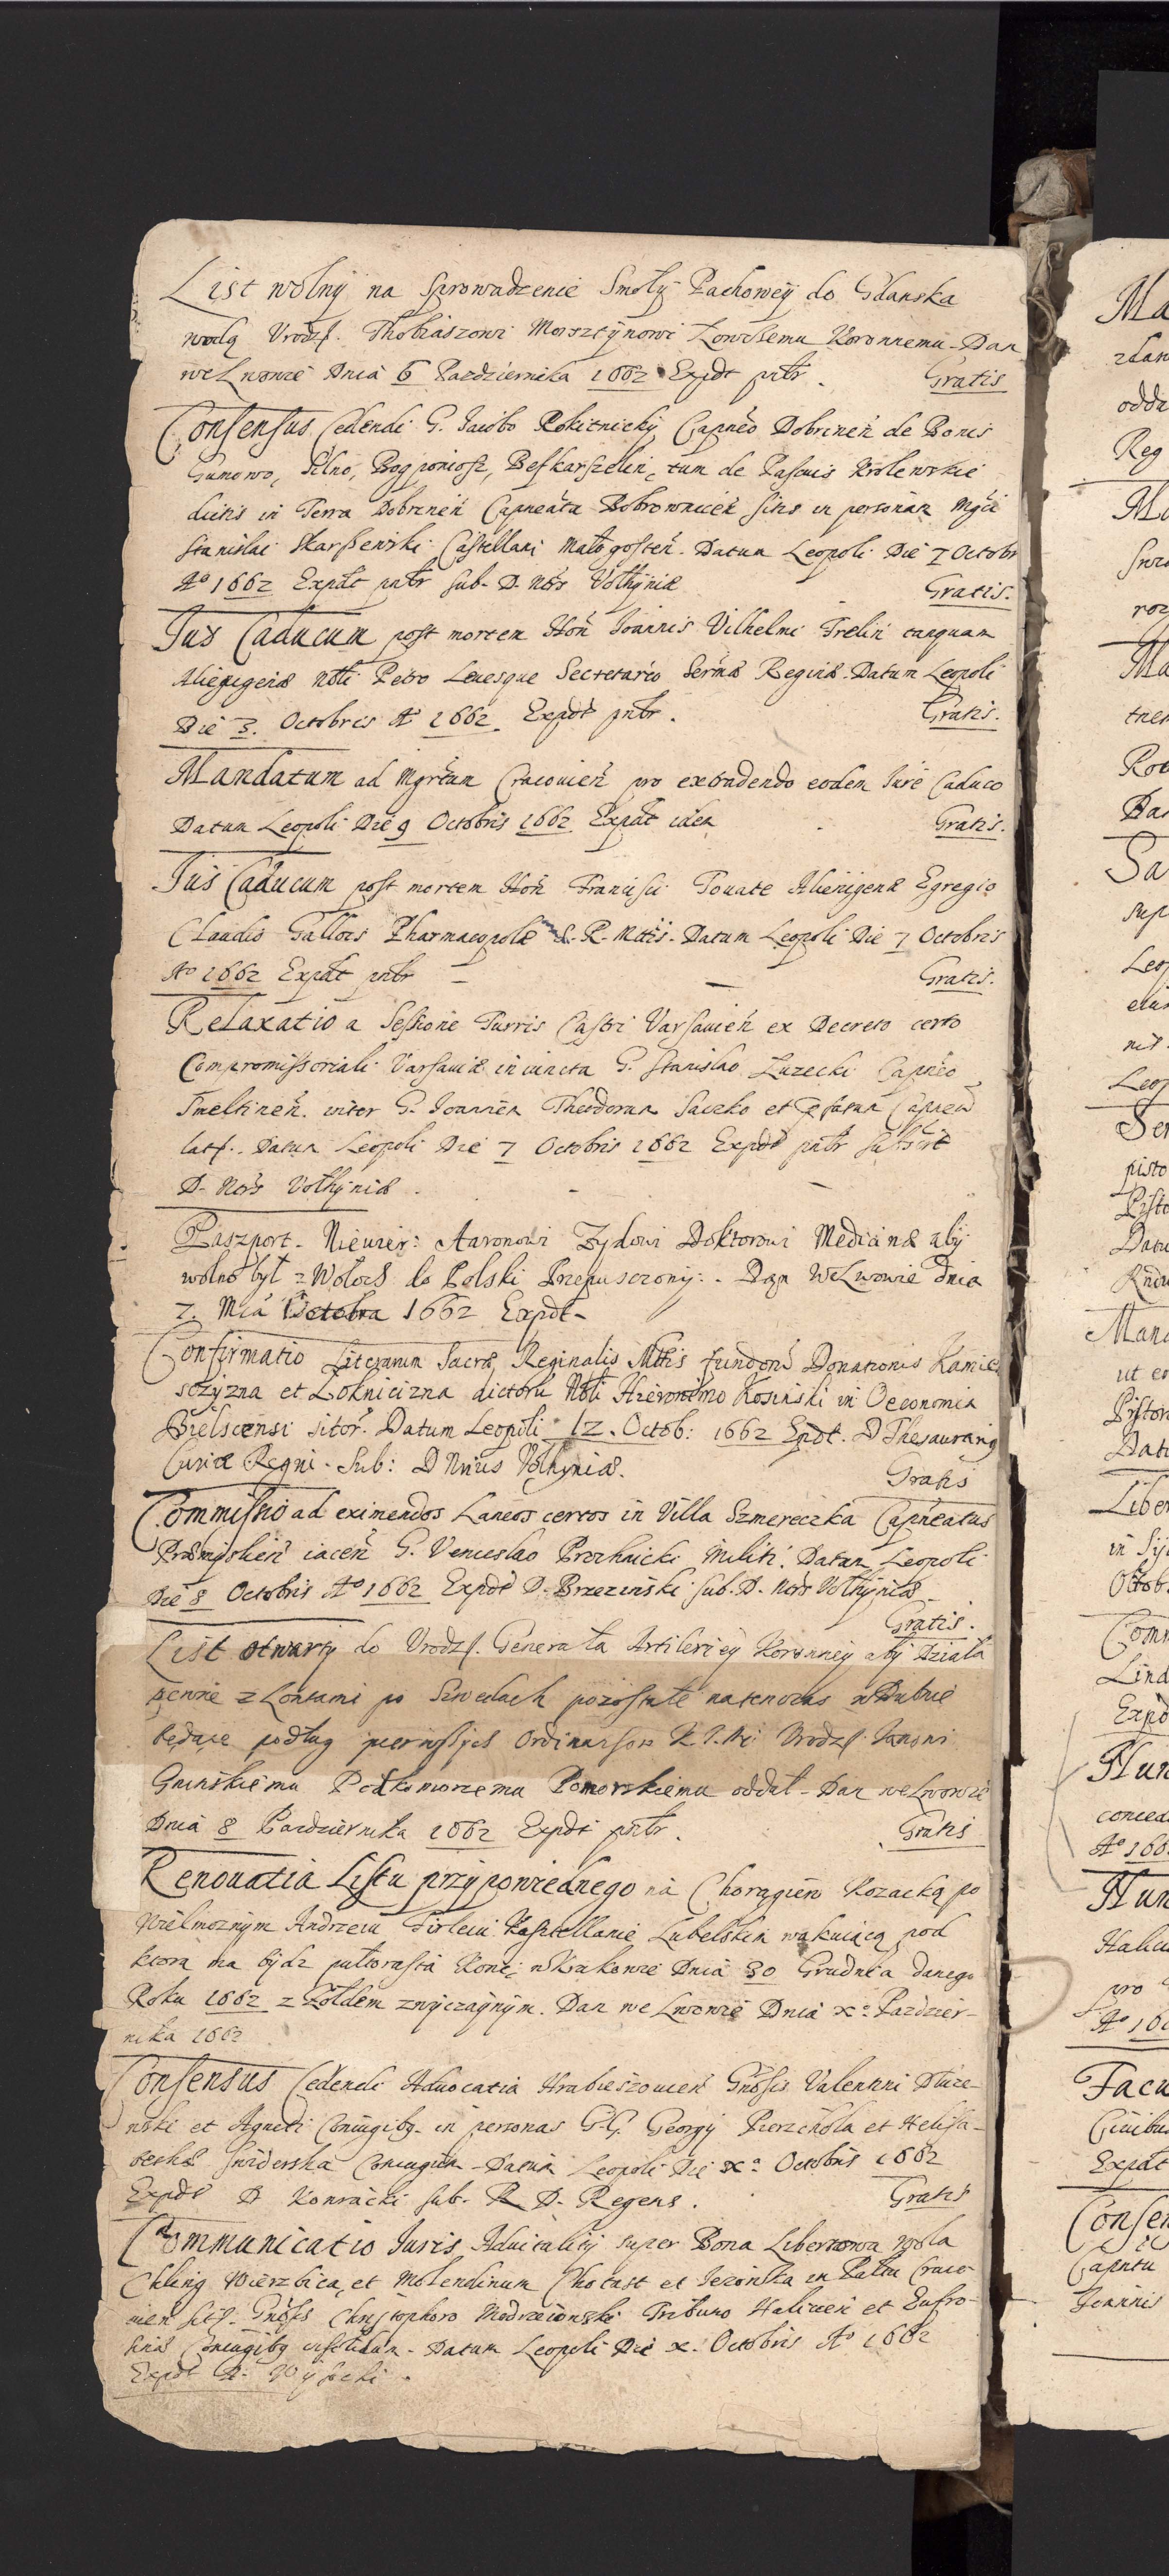 List wolny na sprowadzenie Smoły Pachowey do Gdanska
wodą Vrodz. Thobiaszowi Morsztynowi Łowczemu Koronnemu. Dan
we Lwowie Dnia 6 Pazdziernika 1662 Expdt pntr. Gratis
Consensus Cedendi G. Iacobo Rokitnicky Capneo Dobrinen de Bonis
Gumowo, Pilno, tum de Pascuis Krolewskie
dictis in Terra Dobrinen Capneatu Bobrownicen sitis in personam Mgci
Stanislai Skarszewski Castellani Małogosten. Datum Leopoli Die 7 Octobr
Ao 1662 Expdt pntr sub. D. Nors Volhyniæ Gratis.
Jus Caducum post mortem Hon Joannis Vilhelmi Trelin tanquam
Alienigenæ Nbli Petro Levesque Secretario Sermæ Reginæ. Datum Leopoli
Die 3. Octobris Ao 1662. Expdt pntr. Gratis.
Mandatum ad Mgrtum Cracovien pro extradendo eodem Jure Caduco
Datum Leopoli Die 9 Octobris 1662 Expdt idem Gratis.
Jus Caducum post mortem Hon Francisci Touate Alienigenæ Egregio
Claudio Gallois Pharmacopolæ S. R. Mttis. Datum Leopoli Die 7 Octobris
Ao 1662 Expdt pntr Gratis.
Relaxatio a Sessione Turris Castri Varsavien ex Decreto certo
Compromissoriali Varsaviæ iniuncta G. Stanislao Luzecki Capneo
Smeltinen. inter G. Joannem Theodorum Saczko et Capneum
lat. Datum Leopoli Die 7 Octobris 1662 Expdt pntr
D. Nors Volhyniæ.
Paszport. Niewier: Aaronowi Zydowi Doktorowi Medicinæ aby
wolno był z Woloch do Polski Przepusczony. Dan We Lwowie dnia
7. Mca Octobra 1662 Expdt.
Confirmatio Literarum Sacræ Reginalis Mttis fundorũ Donationis Kamień
sczyzna et Loknicizna dictorũ Nbli Hieronimo Kosinski in Oeconomia
Bielscensi sitor. Datum Leopoli 12. Octob: 1662 Expdt. D Thesaurariq
Curiæ Regni. Sub: D Nrius Volhyniæ. Gratis
Commissio ad eximendos Laneos certos in Villa Szmereczka Capneatus
Præmyslien iacen G. Venceslao Prochnicki Militi. Datum Leopoli
Die 8 Octobris Ao 1662 Expdt D. Brzezinski sub. D. Nors Volhyniæ
Gratis.
List otwarty do Vrodz. Generała Artileriey Koronney aby Działa
pewne z Lontami po Szwedach pozostałe natenczas w Dubnie
będące podług pierwszych Ordinansow Vrodz. Janowi
Gninskiemu Podkomorzemu Pomorskiemu oddał. Dan we Lwowie
Dnia 8 Pazdziernika 1662 Expdt pntr. Gratis
Renouatia Listu przypowiednego na Chorągiew Kozacką po
Wielmoznym Andrzeiu Firleiu Kasztellanie Lubelskim wakuiącą pod
ktorą ma bydz pułtorasta Koni w Krakowie Dnia 30 Grudnia danego
Roku 1662 z Zołdem zwyczaynym. Dan we Lwowie Dnia xa Pazdzier-
nika 1662
Consensus Cedendi Aduocatia Hrabieszouien Gnosis Valentini Dłuze-
wski et Agneti Coniugibq. in personas G.G. Georgy Pierzchola et Helisa-
bethæ Swiderska Coniugum. Datum Leopoli Die xa Octobris 1662
Expdt D Konracki sub. R D. Regens. Gratis
Communicatio Iuris Aduitality super Bona Libertowa wola
Chling Wierzbica, et Molendinum Chotast et Jezionka in Palatu Craco-
uien sit. Gnosis Chrystophoro Modrzewski Tribuno Halicien et Eufro-
sinæ Coniugibq insolidum. Datum Leopoli Die x. Octobris Ao 1662
Expdt D. Wysocki.